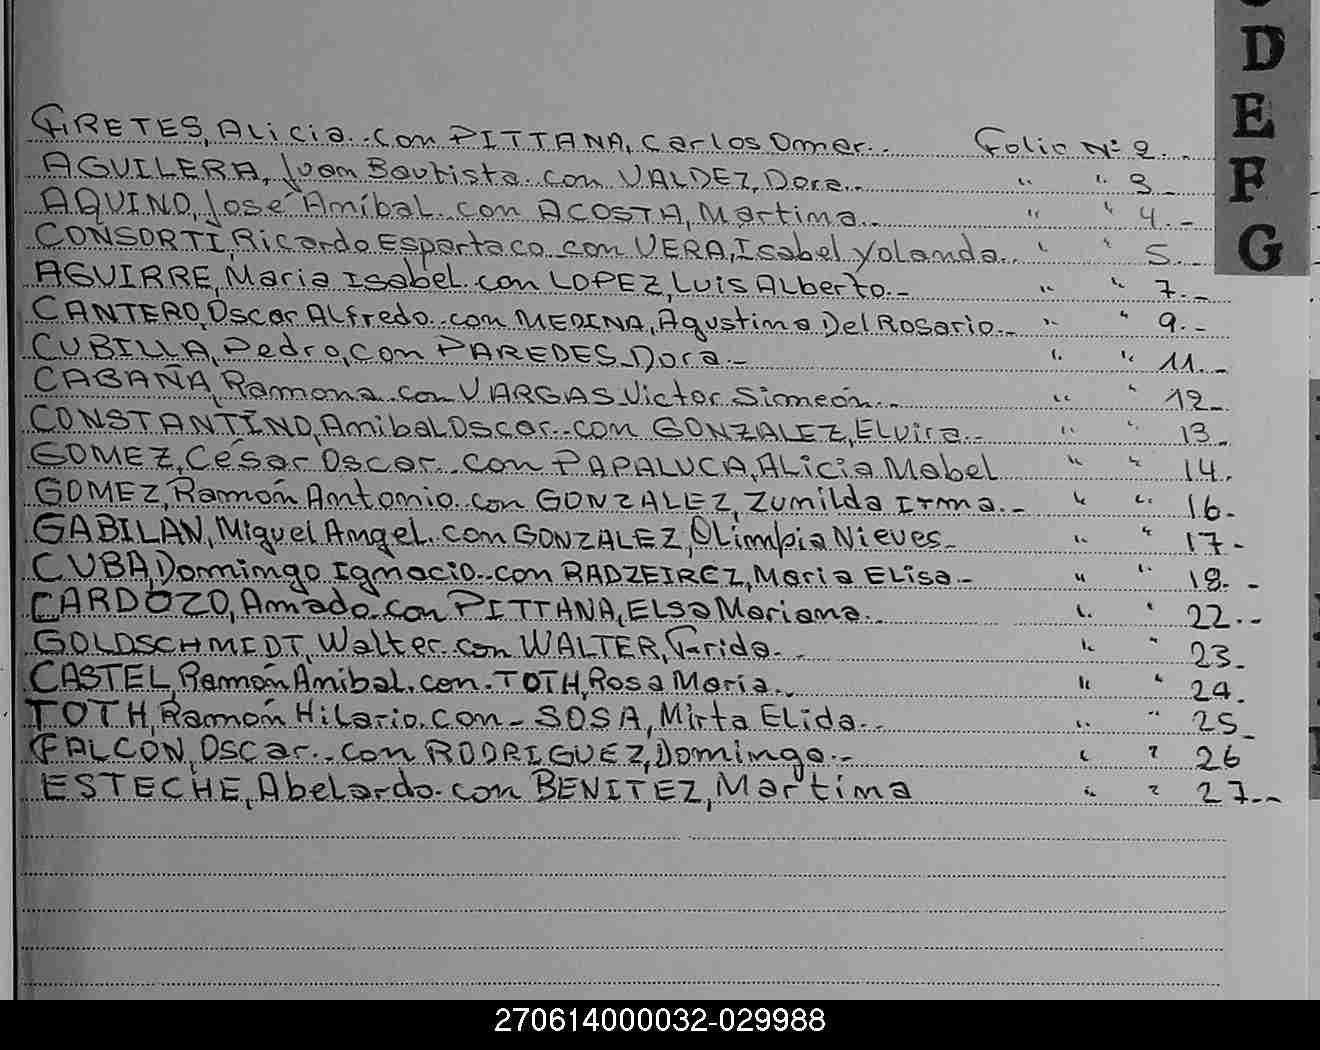 D
E
F
G
GIRETES, Alicia.. con PITTANA, Carlos Omar.. Folio Nº 2..
AGUILERA, Juan Bautista.. con VALDEZ, Dora.. " " 3_
AQUINO, José Anibal. con ACOSTA, Martina.. " " 4.-
CONSORTI, Ricardo Espartaco con VERA, Isabel Yolanda.. " " 5.
AGUIRRE, Maria Isabel. con LOPEZ, Luis Alberto.- " " 7.-
CANTERO, Oscar Alfredo.. con MEDINA, Agustina Del Rosario.- " " 9.-
CUBILLA, Pedro, con PAREDES Dora.- " " 11.-
CABAÑA, Ramona con VARGAS Victor Simeón.. " 12_
CONSTANTINO, Anibal Oscar.. con GONZALEZ, Elvira.. " " 13.
GOMEZ, César Oscar.. con PAPALUCA, Alicia Mabel " " 14.
GOMEZ, Ramón Antonio. con GONZALEZ, Zunilda Irma.- " " 16.
GABILAN, Miguel Angel. con GONZALEZ, Olimpia Nieves_ " " 17-
CUBA, Domingo Ignacio.. con Maria Elisa- " " 18. -
CARDOZO, Amado. con PITTANA, Elsa Mariana.. " " 22..
GOLDSCHMIDT, Walter. con WALTER, " " 23_
CASTEL, Ramón Anibal. con. TOTH, Rosa Maria.. " " 24.
TOTH, Ramón Hilario. con- SOSA, Mirta Elida.. " " 25_
FALCON, Oscar.. con RODRIGUEZ, Dominga.- " " 26
ESTECHE, Abelardo. con BENITEZ, Martina " " 27.-
270614000032-029988